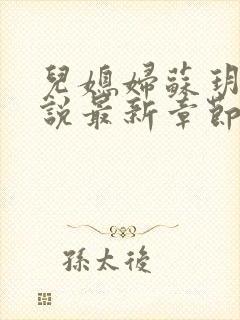 兒媳婦蘇玥
說最新章節
孫太後